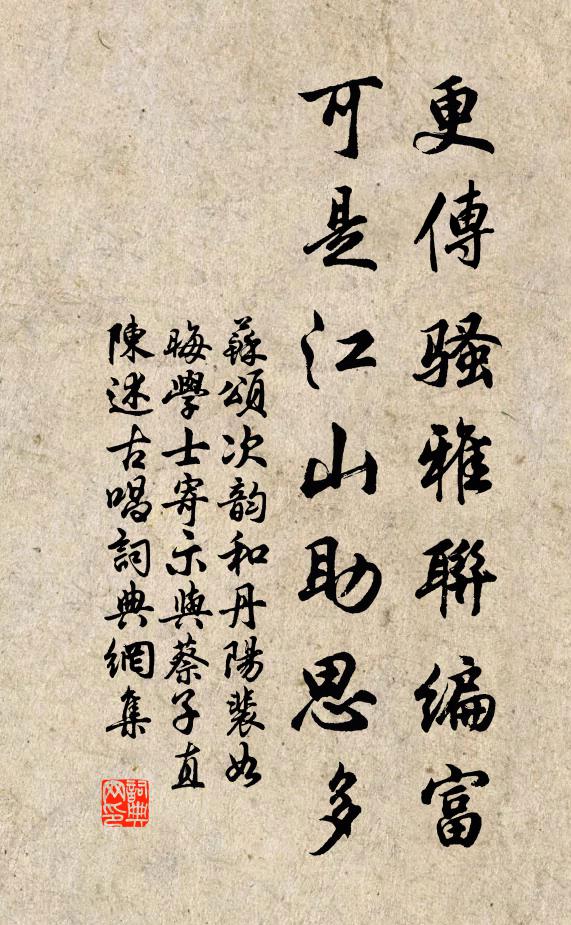 更傳騷雅聯編富
可是江山助思多
蘇頌次韵和丹陽裴如
晦學士寄示與蔡子直
陳述古唱詞典網集
詞典
网印